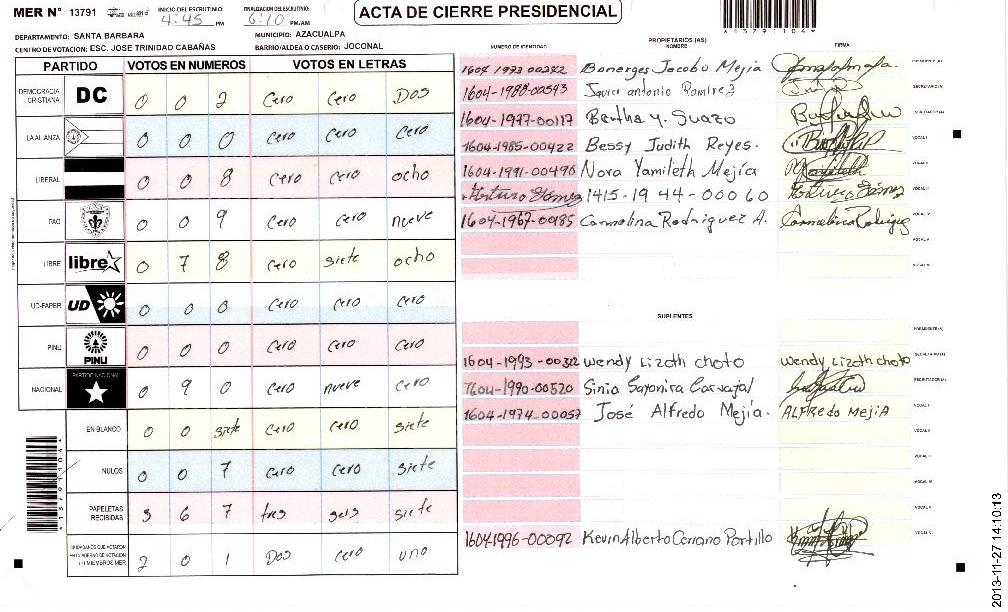 MER N° 13791
INICIO DEL ESCRUTINIO: 4:45 PM
FINALIZACION DEL ESCRUTINIO: 6:10 PM/AM
ACTA DE CIERRE PRESIDENCIAL
*13791104*
DEPARTAMENTO: SANTA BARBARA MUNICIPIO: AZACUALPA
CENTRO DE VOTACION: ESC. JOSE TRINIDAD CABAÑAS BARRIO/ALDEA O CASERIO: JOCONAL
PARTIDO VOTOS EN NUMEROS VOTOS EN LETRAS
DEMOCRACIA CRISTIANA DC 0 0 2 Cero Cero Dos
LA ALIANZA 0 0 0 Cero Cero Cero
LIBERAL 0 0 8 Cero Cero ocho
PAC 0 0 9 Cero Cero nueve
LIBRE libre 0 7 8 Cero siete ocho
UD-FAPER UD 0 0 0 Cero Cero Cero
PINU PINU 0 0 0 Cero Cero Cero
NACIONAL PARTIDO NACIONAL 0 9 0 Cero nueve Cero
EN BLANCO 0 0 siete Cero Cero siete
NULOS 0 0 7 Cero Cero siete
PAPELETAS RECIBIDAS 3 6 7 tres seis siete
CIUDADANOS QUE VOTARON EN CUADERNO DE VOTACION (+) MIEMBROS MER 2 0 1 Dos Cero uno
PROPIETARIOS (AS)
NUMERO DE IDENTIDAD NOMBRE FIRMA
1604 1973 00242 Bonerges Jacobo Mejia PRESIDENTE (A)
1604-1988-00543 Javier antonio Ramirez SECRETARIO (A)
1604-1977-00117 Bertha y. Suazo ESCRUTADOR (A)
1604-1985-00422 Bessy Judith Reyes. VOCAL I
1604-1991-00496 Nora Yamileth Mejía VOCAL II
Arturo Gámez 1415-1944-00060 Arturo Gámez VOCAL III
1604-1967-00185 Carmelina Rodriguez A. Carmelina Rodriguez VOCAL IV
VOCAL V
VOCAL VI
SUPLENTES
PRESIDENTE (A)
1604-1993-00322 Wendy Lizoth choto Wendy Lizoth choto SECRETARIO (A)
1604-1990-00520 Sinia Sayonira Carvajal ESCRUTADOR (A)
1604-1974-00057 José Alfredo Mejía. ALFRedo MejiA VOCAL I
VOCAL II
VOCAL III
VOCAL IV
VOCAL V
1604-1996-00092 Kevin Alberto Cerrano Portillo VOCAL VI
*13791104*
2013-11-27 14:10:13